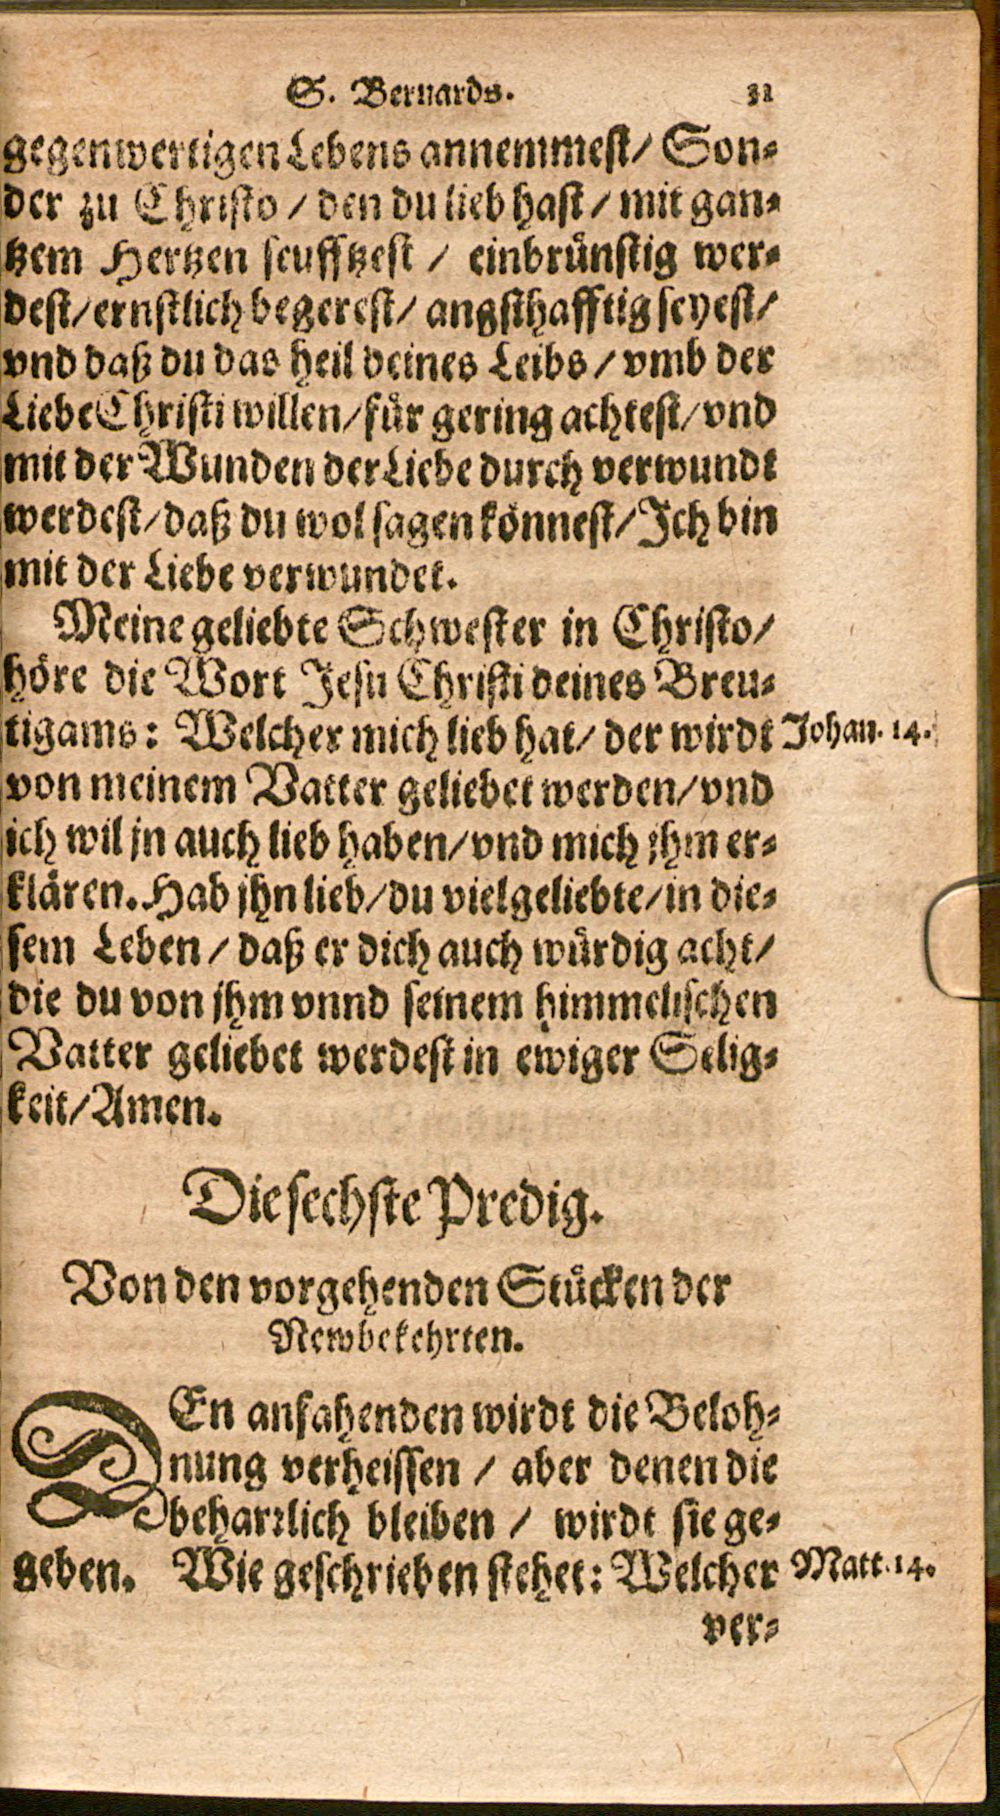 S. Bernards. 31
gegenwertigen Lebens annemmest/ Son-
der zu Christo / den du lieb hast / mit gan-
tzem Hertzen seufftzest / einbrünstig wer-
dest/ ernstlich begerest/ angsthafftig seyest/
vnd daß du das heil deines Leibs / vmb der
Liebe Christi willen/ für gering achtest/ vnd
mit der Wunden der Liebe durch verwundt
werdest/ daß du wol sagen könnest/ Ich bin
mit der Liebe verwundet.
Meine geliebte Schwester in Christo/
höre die Wort Jesu Christi deines Breu-
tigams: Welcher mich lieb hat/ der wirdt Johan. 14.
von meinem Vatter geliebet werden/ vnd
ich wil jn auch lieb haben/ vnd mich jhm er-
klären. Hab jhn lieb/ du vielgeliebte/ in die-
sem Leben / daß er dich auch würdig acht/
die du von jhm vnnd seinem himmelischen
Vatter geliebet werdest in ewiger Selig-
keit/ Amen.
Die sechste Predig.
Von den vorgehenden Stücken der
Newbekehrten.
DEn anfahenden wirdt die Beloh-
nung verheissen / aber denen die
beharrlich bleiben / wirdt sie ge-
geben. Wie geschrieben stehet: Welcher Matt. 14.
ver-